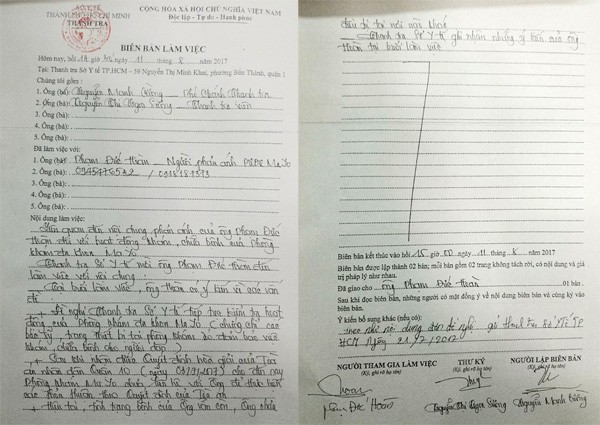 SỞ Y TẾ
THÀNH PHỐ HỒ CHÍ MINH
THANH TRA
CỘNG HÒA XÃ HỘI CHỦ NGHĨA VIỆT NAM
Độc lập - Tự do - Hạnh phúc
BIÊN BẢN LÀM VIỆC
Hôm nay, hồi 14 giờ 00 ngày 11 / 8 / 2017
Tại: Thanh tra Sở Y tế TP.HCM – 59 Nguyễn Thị Minh Khai, phường Bến Thành, quận 1
Chúng tôi gồm:
1. Ông (bà): Nguyễn Minh Phó Chánh Thanh tra
2. Ông (bà): Nguyễn Thị Ngọc Thanh tra viên
3. Ông (bà):
4. Ông (bà):
5. Ông (bà):
Đã làm việc với:
1. Ông (bà): Phạm Đức Người phản ánh PKĐK
2. Ông (bà): /
3. Ông (bà):
4. Ông (bà):
5. Ông (bà):
Nội dung làm việc:
Liên quan đến nội dung phản ánh của ông Phạm Đức
đối với hoạt động khám, chữa bệnh của Phòng
khám đa khoa
Thanh tra Sở Y tế mời ông Phạm Đức đến
làm việc với nội dung:
Tại buổi làm việc, ông có ý kiến về các vấn
đề:
+ Đề nghị Thanh tra Sở Y tế tiếp tục kiểm tra hoạt
động của Phòng khám đa khoa
trang thiết bị tại phòng khám
khám, chữa bệnh cho người
+ Sau khi nhận được Quyết định hòa giải của Tòa
án nhân dân Quận 10 cho đến nay
Phòng khám chưa liên hệ với ông để thực hiện
các theo Quyết định của Tòa án
+ Hiện tại, tình trạng bệnh của ông vẫn còn, ông
điều trị tại nơi khác
Thanh tra Sở Y tế ghi nhận những ý kiến của ông
tại buổi làm việc
Biên bản kết thúc vào hồi 15 giờ 00 ngày 11 / 8 / 2017
Biên bản được lập thành 02 bản; mỗi bản gồm 02 trang không tách rời, có nội dung và giá
trị pháp lý như nhau.
Đã giao cho ông Phạm Đức 01 bản.
Sau khi đọc biên bản, những người có mặt đồng ý về nội dung biên bản và cùng ký vào
biên bản.
Ý kiến bổ sung khác (nếu có):
theo nội dung đơn đề nghị gửi Thanh tra Sở Y Tế TP
HCM Ngày
NGƯỜI THAM GIA LÀM VIỆC
(Ký, ghi rõ họ tên)
THƯ KÝ
(Ký, ghi rõ họ tên)
NGƯỜI LẬP BIÊN BẢN
(Ký, ghi rõ họ tên)
Phạm Đức
Nguyễn Thị Ngọc
Nguyễn Minh